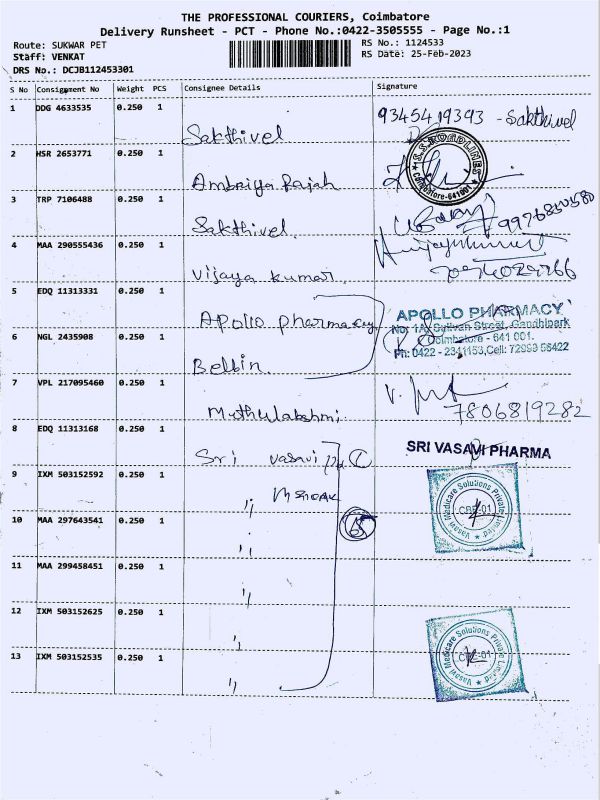 THE PROFESSIONAL COURIERS, Coimbatore
Delivery Runsheet - PCT - Phone No.:0422-3505555 - Page No.:1
Route: SUKWAR PET
RS No.: 1124533
Staff: VENKAT
RS Date: 25-Feb-2023
DRS No.: DCJB112453301
S No Consignment No Weight PCS Consignee Details Signature
1 DDG 4633535 0.250 1
9345419393 - Sakthivel
Sakthivel
2 HSR 2653771 0.250 1
S.S. ROADLINES
Coimbatore-641001
Ambaiya Rajah
3 TRP 7106488 0.250 1
Sakthivel
4 MAA 290555436 0.250 1
Vijayakumar
Vijaya kumar
5 EDQ 11313331 0.250 1
Apollo pharmacy
APOLLO PHARMACY
No: 1A, Sullivan Street, Gandhipark
Coimbatore - 641 001.
Ph: 0422 - 2341153, Cell: 72993 56422
6 NGL 2435908 0.250 1
Belbin
7 VPL 217095460 0.250 1
7806819282
Muthulakshmi
8 EDQ 11313168 0.250 1
Sri vasavi
SRI VASAVI PHARMA
9 IXM 503152592 0.250 1
Vasavi Medicare Solutions Private Limited
CBE-01
"
10 MAA 297643541 0.250 1
"
11 MAA 299458451 0.250 1
"
12 IXM 503152625 0.250 1
"
Vasavi Medicare Solutions Private Limited
CBE-01
13 IXM 503152535 0.250 1
"